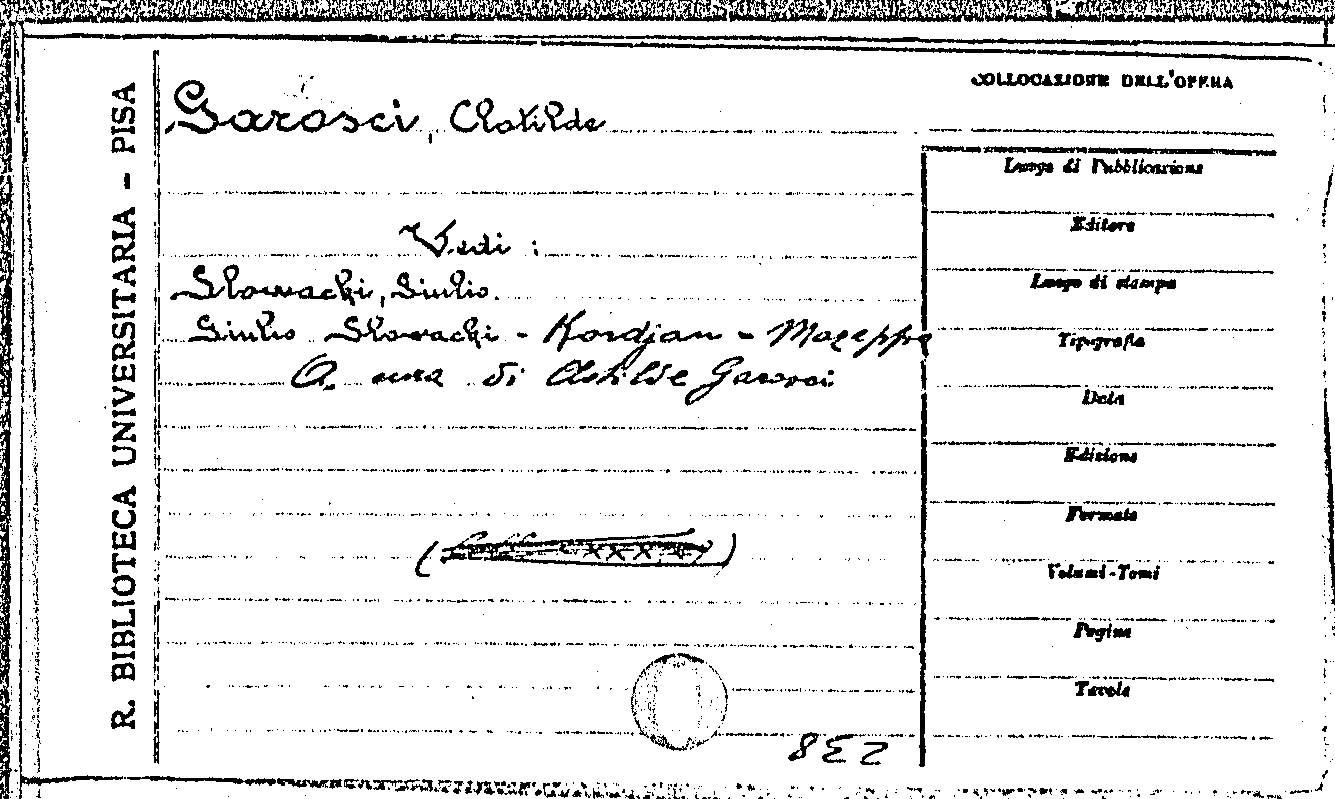 R. BIBLIOTECA UNIVERSITARIA - PISA
Garosci, Clotilde
Vedi :
Slowacki, Giulio.
Giulio Slowacki - Kordjan - Mazeppa
A cura di Clotilde Garosci
COLLOCAZIONE DELL'OPERA
Luogo di Pubblicazione
Editore
Luogo di stampa
Tipografia
Data
Edizione
Formato
Volumi-Tomi
Pagine
Tavole